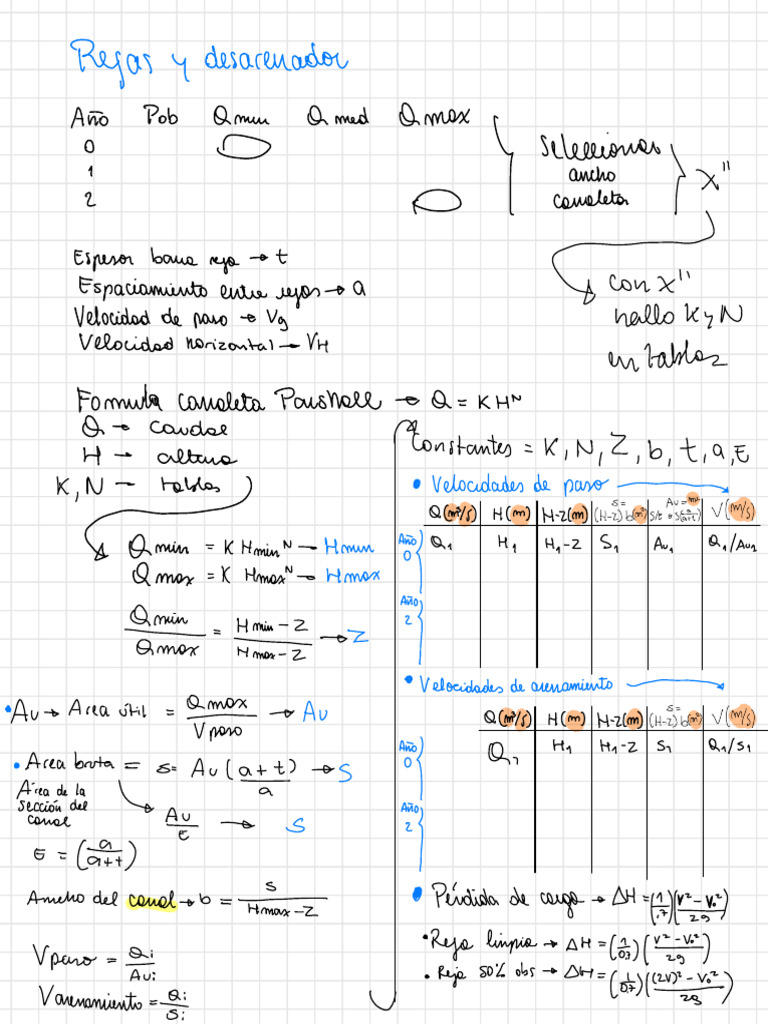 Rejas y desarenador
Año Pob Qmin Qmed Qmax
0
1
2
Seleccionar
ancho
canaleta
x"
con x"
hallo K y N
en tablas
Espesor barra reja → t
Espaciamiento entre rejas → a
Velocidad de paso → Vg
Velocidad horizontal → VH
Formula canaleta Parshall → Q = KH^N
Q → caudal
H → altura
K, N → tablas
Qmin = K Hmin^N → Hmin
Qmax = K Hmax^N → Hmax
Qmin / Qmax = (Hmin - Z) / (Hmax - Z) → Z
• Au → Area útil = Qmax / Vpaso → Au
• Area bruta = S = Au (a + t) / a → S
Área de la
sección del
canal
Au / E → S
E = (a / (a + t))
Ancho del canal → b = S / (Hmax - Z)
Vpaso = Qi / Aui
Varenamiento = Qi / Si
Constantes = K, N, Z, b, t, a, E
• Velocidades de paso
Q (m³/s) H (m) H-Z (m) S = (H-Z) b (m²) Au = m² V (m/s)
Año 0 Q1 H1 H1-Z S1 Au1 Q1/Au1
Año 2
• Velocidades de arenamiento
Q (m³/s) H (m) H-Z (m) S = (H-Z) b (m²) V (m/s)
Año 0 Q1 H1 H1-Z S1 Q1/S1
Año 2
• Pérdida de carga → ΔH = (1/.7) (V² - Vo² / 2g)
• Reja limpia → ΔH = (1/0.7) (V² - Vo² / 2g)
• Reja 50% obs → ΔH = (1/0.7) ((2V)² - Vo² / 2g)